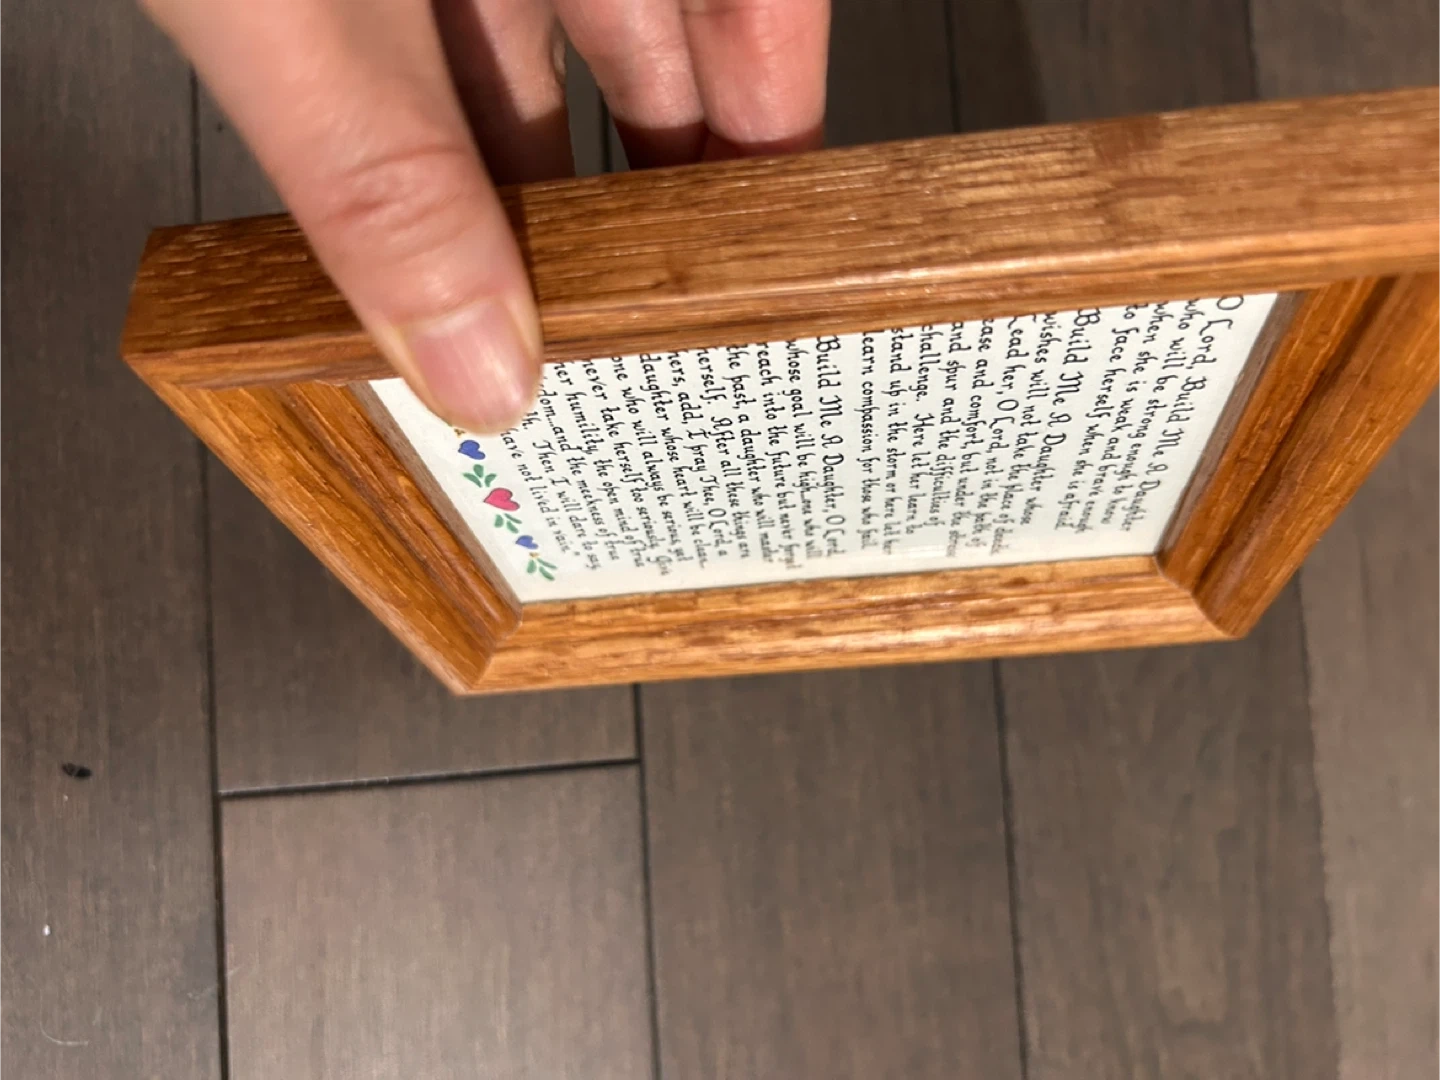 O Lord, Build Me A Daughter
who will be strong enough to know
when she is weak and brave enough
to face herself when she is afraid.
Build Me A Daughter whose
wishes will not take the place of deeds.
Lead her, O Lord, not in the path of
ease and comfort, but under the stress
and spur and the difficulties of
challenge. Here let her learn to
stand up in the storm or here let her
learn compassion for those who fail.
Build Me A Daughter, O Lord,
whose goal will be high...one who will
reach into the future but never forget
the past, a daughter who will master
herself. After all these things are
hers, add, I pray Thee, O Lord, a
daughter whose heart will be clean...
one who will always be serious, yet
never take herself too seriously. Give
her humility, the open mind of true
and the meekness of true
Then I will dare to say,
have not lived in vain."